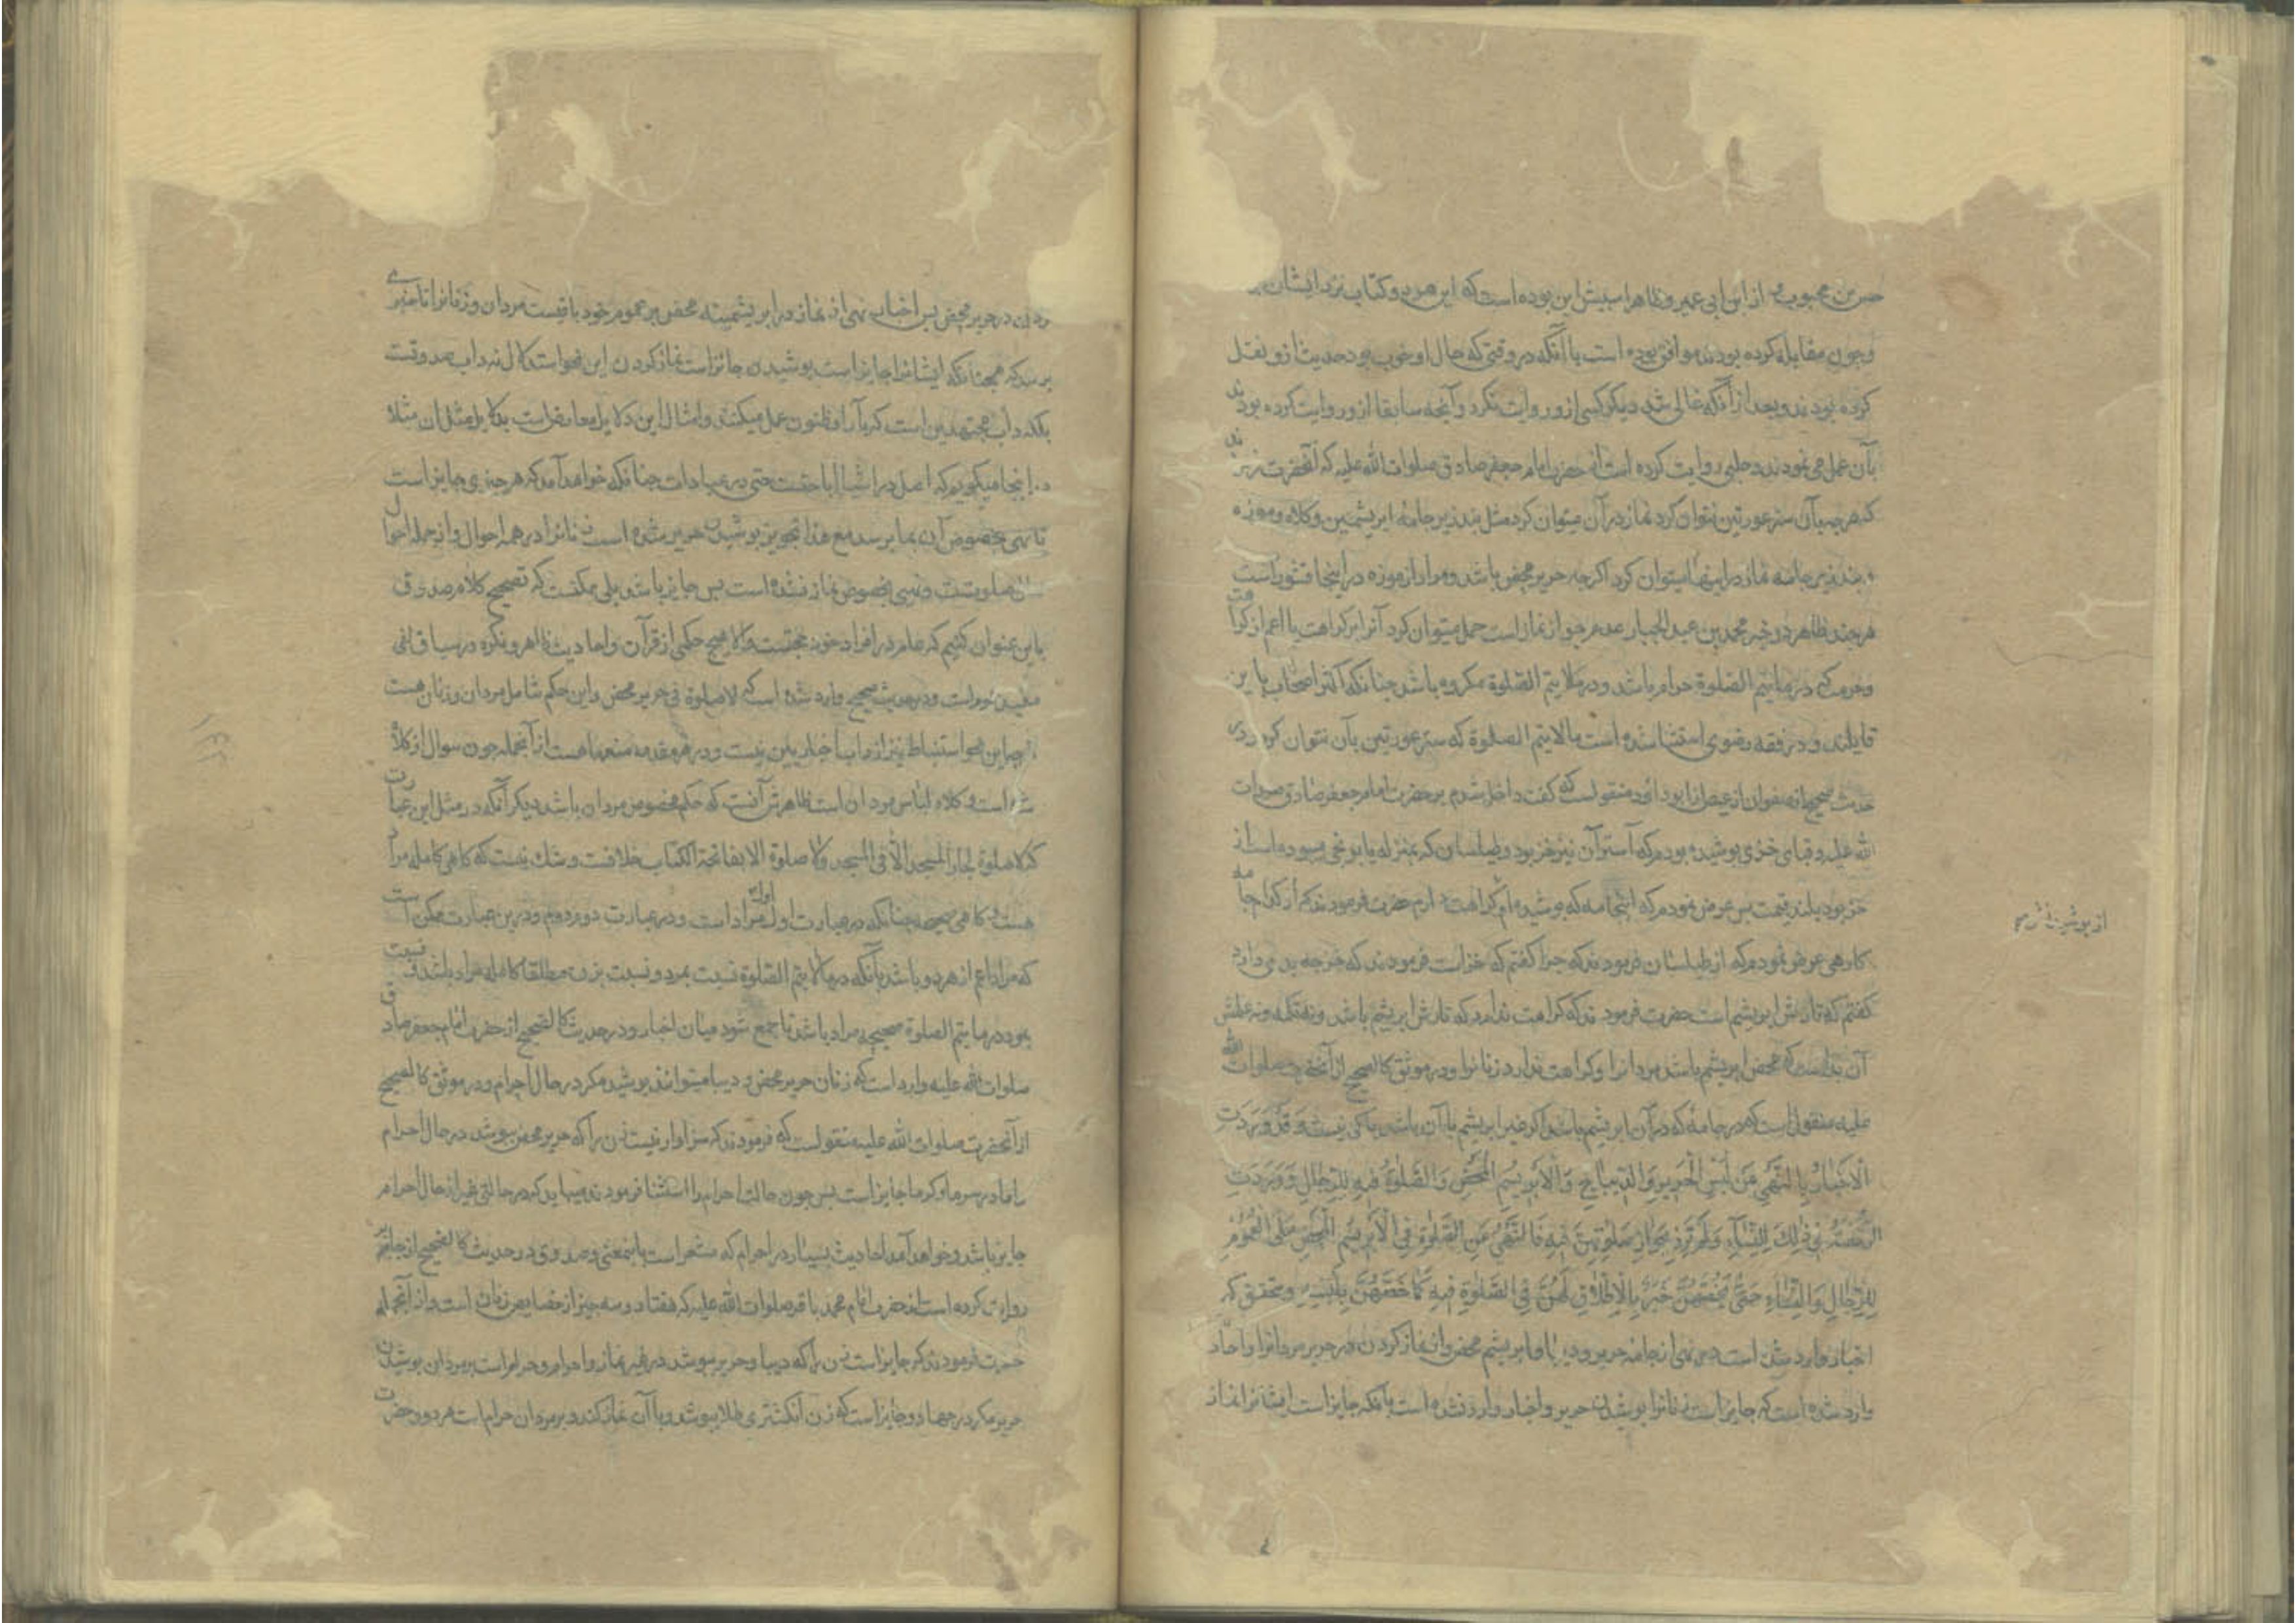 حسن بن محبوب و از ابن ابی عمیر و ظاهرا سببش این بوده است که این هر دو کتاب نزد ایشان
و چون مقابله کرده بودند موافق بوده است با آنکه در وقتی که حال او خوب بود حدیث ازو نقل
کرده بودند و بعد از آنکه غالی شد دیگر کسی ازو روایت نکرد و آنچه سابقا ازو روایت کرده بودند
بآن عمل می نمودند و حلبی روایت کرده است از حضرت امام جعفر صادق صلوات الله علیه که آنحضرت
که هر چه بآن ستر عورتین نتوان کرد نماز در آن میتوان کرد مثل بند زیر جامه ابریشمین و کلاه و موزه
و بند زیر جامه نماز در اینها میتوان کرد اگرچه حریر محض باشد و مراد از موزه در اینجا
هر چند ظاهر دو خبر محمد بن عبد الجبار عدم جواز نماز است حمل میتوان کرد آنرا بر کراهت یا اعم از کراهت
و حرمت که در ما یتم الصلوة حرام باشد و در ما لا یتم الصلوة مکروه باشد چنانکه اکثر اصحاب باین
قایلند و در فقه رضوی استثنا شده است ما لا یتم الصلوة که ستر عورتین بآن نتوان کرد و در
حدیث صحیح از صفوان از عیص از ابو داود منقولست که گفت داخل شدم بر حضرت امام جعفر صادق صلوات
الله علیه و قبای خزی پوشیده بودم که آستر آن نیز خز بود و طیلسان که بمنزله یاپونجی بوده است از
خز بود بلند قیمت پس عرض نمودم که اینجامه که پوشیده ام کراهت دارم حضرت فرمودند که از کدام جامه
کارهی عرض نمودم که از طیلسان فرمودند که چرا گفتم که خز است فرمودند که خز چه بدی دارد
گفتم که تارش ابریشم است حضرت فرمودند که کراهت ندارد که تارش ابریشم باشد و نه تکمه و نه علمش
آن بد است که محض ابریشم باشد مردانرا و کراهت ندارد زنانرا و در موثق کالصحیح از آنحضرت صلوات الله
علیه منقول است که در جامه که در آن ابریشم باشد اگر غیر ابریشم با آن باشد باکی نیست وَ قَدْ وَرَدَتِ
الْاَخْبَارُ بِالنَّهْيِ عَنْ لُبْسِ الْحَرِيرِ وَ الدِّيبَاجِ وَ الْاِبْرِيسَمِ الْمَحْضِ وَ الصَّلٰوةُ فِيهِ لِلرِّجَالِ وَ وَرَدَتِ
الرُّخْصَةُ فِي ذٰلِكَ لِلنِّسَآءِ وَ لَمْ تَرِدْ بِجَوَازِ صَلٰوتِهِنَّ فِيهِ فَالنَّهْيُ عَنِ الصَّلٰوةِ فِي الْاِبْرِيسَمِ الْمَحْضِ عَلَى الْعُمُومِ
لِلرِّجَالِ وَ النِّسَاءِ حَتّٰى يَخُصَّهُنَّ خَبَرٌ بِالْاِطْلَاقِ لَهُنَّ فِي الصَّلٰوةِ فِيهِ كَمَا خَصَّهُنَّ بِلُبْسِهِ و محقق که
اخبار وارد شده است در نهی از جامه حریر و دیبا و ابریشم محض و از نماز کردن در حریر مردانرا و احاد
وارد شده است که جایز است زنانرا پوشیدن حریر و اخبار وارد نشده است بآنکه جایز است ایشانرا نماز
از پوشیدنش
کردن در حریر محض پس اخبار نهی از نماز در ابریشمینه محض بر عموم خود باقیست مردان و زنانرا تا خبری
برسد که همچنانکه ایشانرا جایز است پوشیدن جائز است نماز کردن این نحو استدلال نه داب صدوقست
بلکه داب مجتهدین است که بآرا و ظنون عمل میکنند و امثال این دلایل معارض است بدلایل مثل ان مثلا
در اینجا میگویم که اصل در اشیا اباحتست حتی در عبادات چنانکه خواهد آمد که هر چیزی جایز است
تا نهی بخصوص آن بما برسد مع هذا تجویز پوشیدن حریر شده است زنانرا در همه احوال و از جمله احوال
صلوتست و نهیی بخصوص نماز نشده است پس جایز باشد بلی ممکنست که تصحیح کلام صدوق
باین عنوان کنیم که عام در افراد خود حجتست والا هیچ حکمی از قرآن و احادیث ظاهر و نکره در سیاق نفی
مفید عموم است و در حدیث صحیح وارد شده است که لا صلوة فی حریر محض و این حکم شامل مردان و زنان هست
اگرچه این نحو استنباط نیز از داب اخباریین نیست و در هر مقدمه منعها هست از آنجمله چون سوال از کلاه
شده است و کلاه لباس مردان است ظاهرش آنست که حکم مخصوص مردان باشد دیگر آنکه در مثل این عبارت
که لا صلوة لجار المسجد الا فی المسجد و لا صلوة الا بفاتحة الکتاب خلافست و شک نیست که گاهی کامله مراد
هست و گاهی صحیحه چنانکه در عبارت اول اول مراد است و در عبارت دوم دوم و درین عبارت ممکن است
که مراد اعم از هر دو باشد بآنکه در ما لا یتم الصلوة نسبت بمرد و نسبت بزن مطلقا کامله مراد باشد و نسبت
بمرد در ما یتم الصلوة صحیحه مراد باشد تا جمع شود میان اخبار و در حدیث کالصحیح از حضرت امام جعفر صادق
صلوات الله علیه وارد است که زنان حریر محض و دیبا میتوانند پوشید مگر در حال احرام و در موثق کالصحیح
از آنحضرت صلوات الله علیه منقولست که فرمودند که سزاوار نیست زن را که حریر محض بپوشد در حال احرام
و اما در سرما و گرما جایز است پس چون حالت احرام را استثنا فرمودند میباید که در حالتی غیر از حال احرام
جایز باشد و خواهد آمد احادیث بسیار در احرام که مشعر است باینمعنی و صدوق در حدیث کالصحیح از جابر
روایت کرده است از حضرت امام محمد باقر صلوات الله علیه که هفتاد و سه چیز از خصایص زنان است و از آنجمله
حضرت فرمودند که جایز است زن را که دیبا و حریر بپوشد در غیر نماز و احرام و حرام است بر مردان پوشیدن
حریر مگر در جهاد و جایز است که زن انگشتری طلا بپوشد و با آن نماز کند و بر مردان حرام است هر دو و حضرت